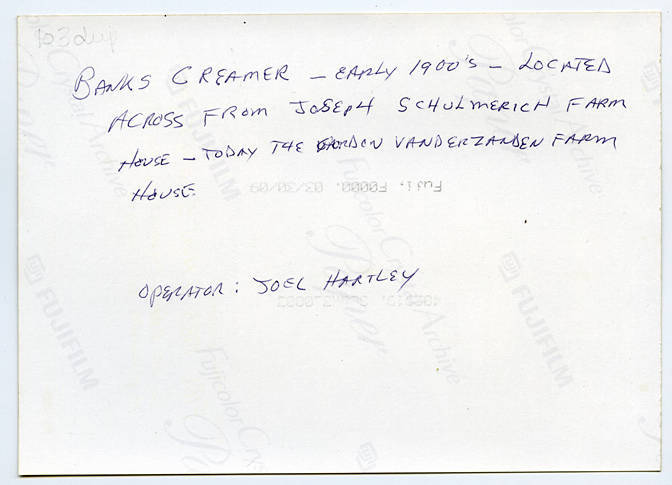 103dup
BANKS CREAMER – EARLY 1900's – LOCATED
ACROSS FROM JOSEPH SCHULMERICH FARM
HOUSE – TODAY THE GORDON VANDERZANDEN FARM
HOUSE.
Fuji. F0000. 03/30/09
OPERATOR: JOEL HARTLEY
Fujicolor Crystal Archive
Paper
FUJIFILM
FUJIFILM
FUJIFILM